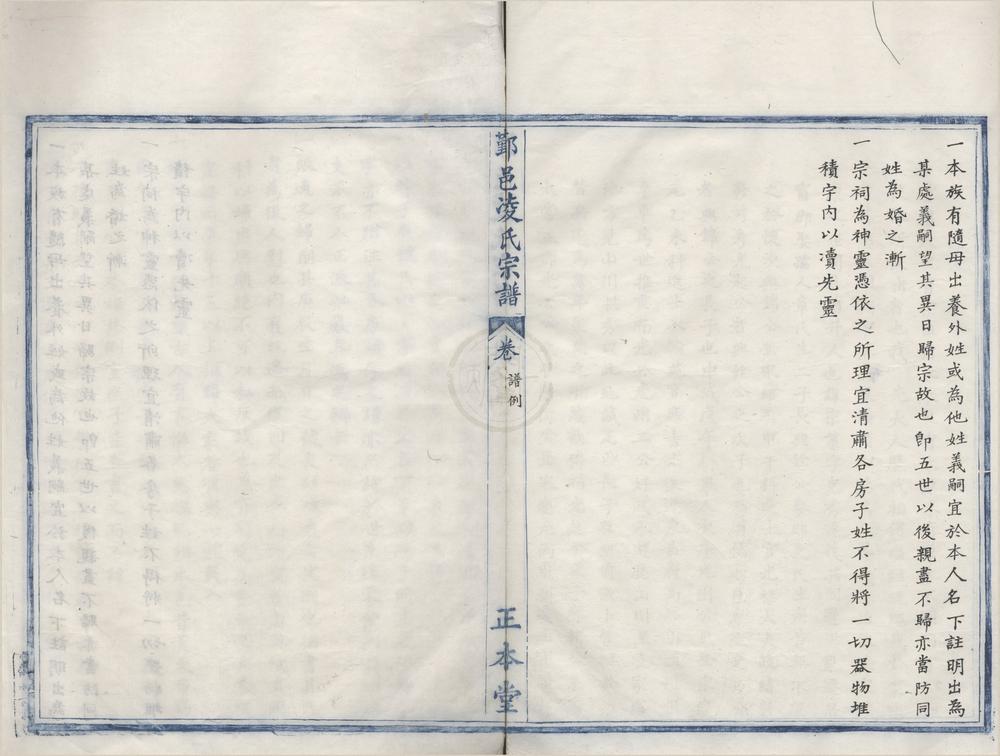 一本族有隨母出養外姓或為他姓義嗣宜於本人名下註明出為
某處義嗣望其異日歸宗故也即五世以後親盡不歸亦當防同
姓為婚之漸
一宗祠為神靈憑依之所理宜清肅各房子姓不得將一切器物堆
積宇內以瀆先靈
鄞邑凌氏宗譜
卷
譜例
正本堂